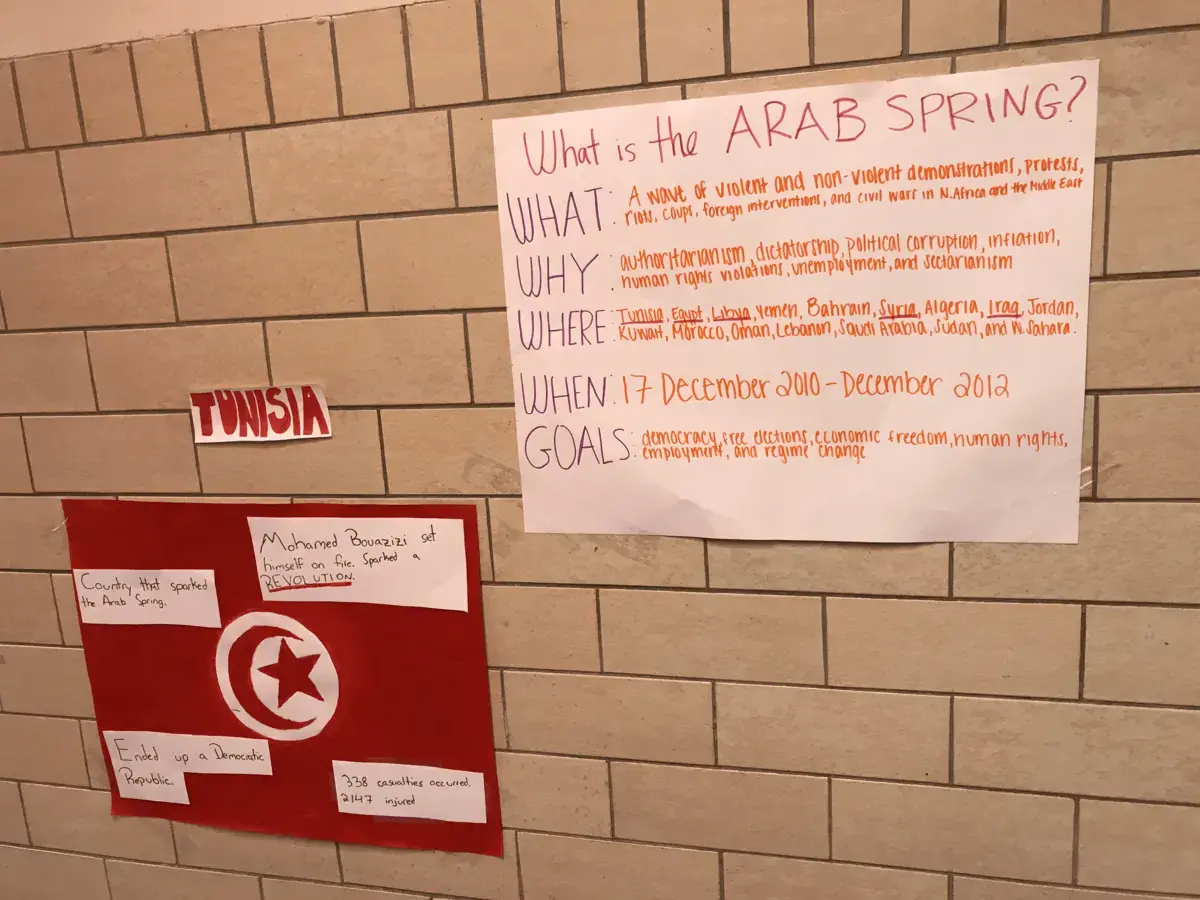 What is the ARAB SPRING?
WHAT: A wave of violent and non-violent demonstrations, protests,
riots, coups, foreign interventions, and civil wars in N. Africa and the Middle East
WHY: authoritarianism, dictatorship, political corruption, inflation,
human rights violations, unemployment, and sectarianism
WHERE: Tunisia, Egypt, Libya, Yemen, Bahrain, Syria, Algeria, Iraq, Jordan,
Kuwait, Morocco, Oman, Lebanon, Saudi Arabia, Sudan, and W. Sahara.
WHEN: 17 December 2010 - December 2012
GOALS: democracy, free elections, economic freedom, human rights,
employment, and regime change
TUNISIA
Mohamed Bouazizi set
himself on fire. Sparked a
REVOLUTION.
Country that sparked
the Arab Spring.
Ended up a Democratic
Republic.
338 casualties occurred.
2147 injured